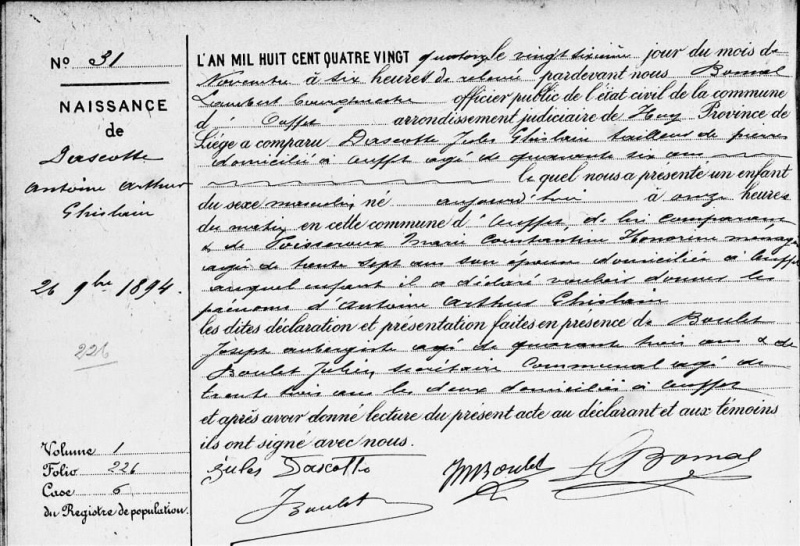 No 31
NAISSANCE
de
Dascotte
Antoine Arthur
Ghislain
26 9bre 1894.
226
Volume 1
Folio 226
Case 6
du Registre de population.
L'AN MIL HUIT CENT QUATRE VINGT quatorze le vingt sixième jour du mois de
Novembre à six heures de relevée pardevant nous Bomal
Lambert bourgmestre officier public de l'état civil de la commune
d' Ouffet arrondissement judiciaire de Huy Province de
Liège a comparu Dascotte Jules Ghislain tailleur de pierres
domicilié à Ouffet agé de quarante six ans
le quel nous a présenté un enfant
du sexe masculin né aujourd'hui à onze heures
du matin en cette commune d'Ouffet, de lui comparant
& de Toisseroux Marie Constantine Honorine ménagère
agée de trente sept ans son épouse domiciliée à Ouffet
auquel enfant il a déclaré vouloir donner les
prénoms d'Antoine Arthur Ghislain
les dites déclaration et présentation faites en présence de Boulet
Joseph aubergiste agé de quarante trois ans & de
Boulet Julien secrétaire communal agé de
trente trois ans les deux domiciliés à Ouffet
et après avoir donné lecture du présent acte au déclarant et aux témoins
ils ont signé avec nous.
Jules Dascotte JMBoulet LBomal
JBoulet